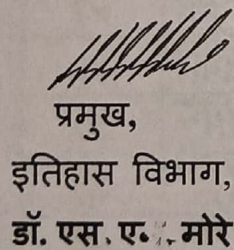 प्रमुख,
इतिहास विभाग,
डॉ. एस. ए. मोरे